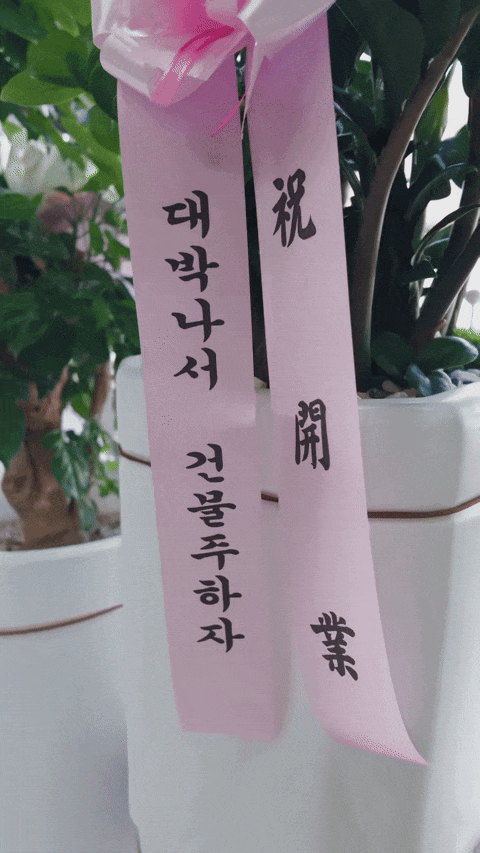 祝開業
대박나서 건물주하자